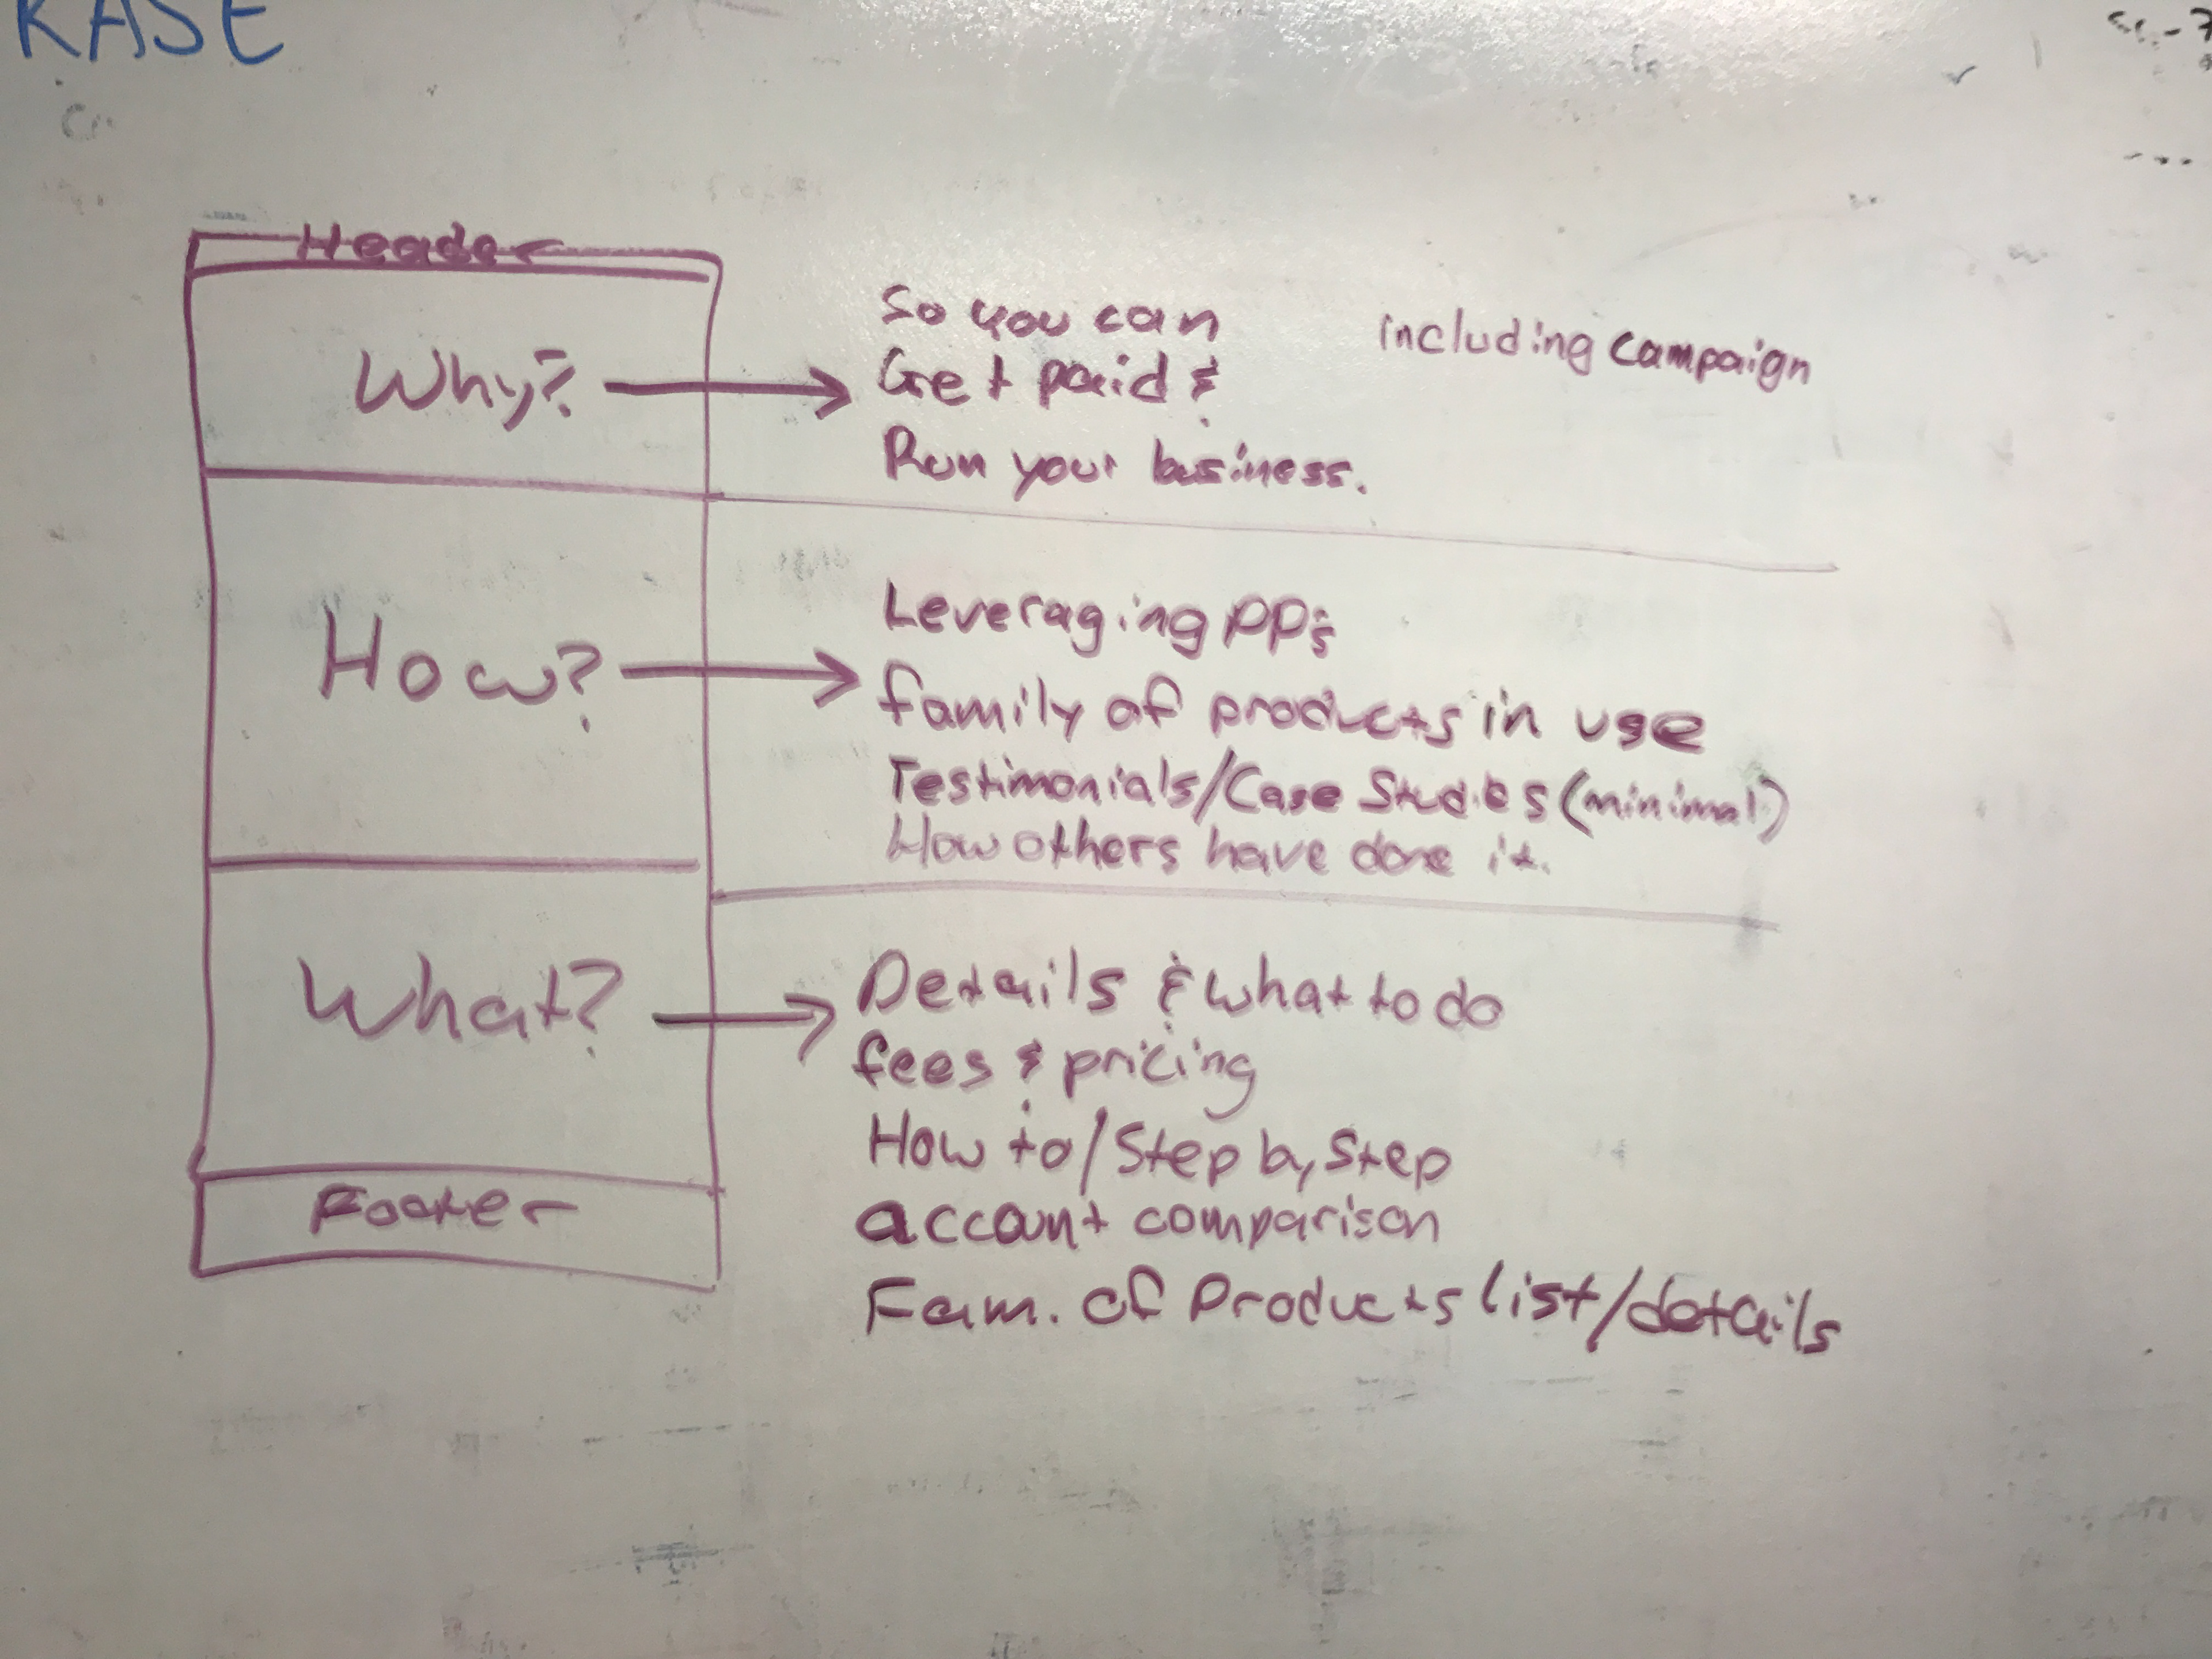 Header
Why?
So you can
Get paid &
Run your business.
including campaign
How?
Leveraging PP's
family of products in use
Testimonials/Case Studies (minimal)
How others have done it.
What?
Details & what to do
fees & pricing
How to/Step by Step
account comparison
Fam. of Products list/details
Footer